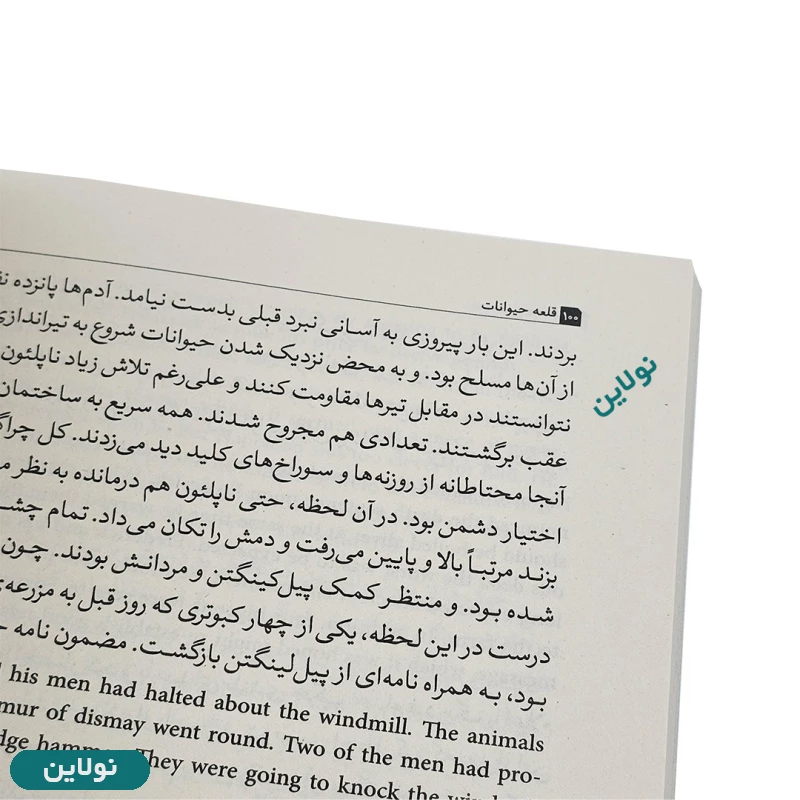 ۱۰۰ قلعه حیوانات
بردند. این بار پیروزی به آسانی نبرد قبلی بدست نیامد. آدم‌ها پانزده
از آن‌ها مسلح بود. و به محض نزدیک شدن حیوانات شروع به تیراندازی
نتوانستند در مقابل تیرها مقاومت کنند و علی‌رغم تلاش زیاد ناپلئون
عقب برگشتند. تعدادی هم مجروح شدند. همه سریع به ساختمان
آنجا محتاطانه از روزنه‌ها و سوراخ‌های کلید دید می‌زدند. کل
اختیار دشمن بود. در آن لحظه، حتی ناپلئون هم درمانده به نظر
بزند مرتباً بالا و پایین می‌رفت و دمش را تکان می‌داد. تمام
شده بود. و منتظر کمک پیل‌کینگتن و مردانش بودند. چون
درست در این لحظه، یکی از چهار کبوتری که روز قبل به مزرعه‌ی
بود، به همراه نامه‌ای از پیل‌لینگتن بازگشت. مضمون نامه
his men had halted about the windmill. The animals
mur of dismay went round. Two of the men had pro-
They were going to knock the
نولاین
نولاین